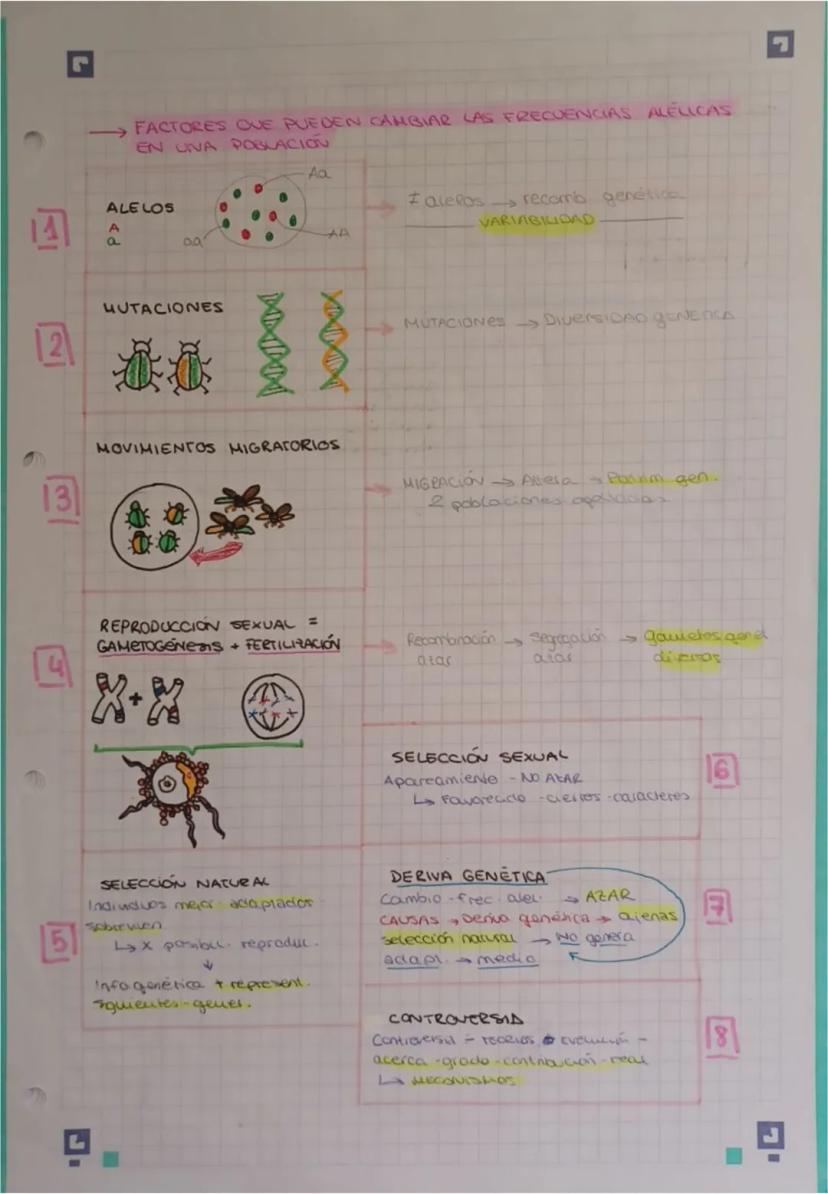 → FACTORES QUE PUEDEN CAMBIAR LAS FRECUENCIAS ALÉLICAS
EN UNA POBLACIÓN
1
ALELOS
A
a
Aa
aa
AA
≠ alelos → recomb genética
VARIABILIDAD
2
MUTACIONES
MUTACIONES → DIVERSIDAD GENÉTICA
3
MOVIMIENTOS MIGRATORIOS
MIGRACIÓN → Altera → gen.
2 poblaciones
4
REPRODUCCIÓN SEXUAL =
GAMETOGÉNESIS + FERTILIZACIÓN
Recombinación → Segregación → gametos genet
azar azar diversos
5
SELECCIÓN NATURAL
Individuos mejor adaptados
sobreviven
↳ X posibil. reproduc.
↓
Info genética + represent.
siguientes - gener.
6
SELECCIÓN SEXUAL
Apareamiento - NO AZAR
↳ Favorecido - ciertos - caracteres
7
DERIVA GENÉTICA
Cambio - frec. alel. → AZAR
CAUSAS → Deriva genética → ajenas
selección natural → No genera
adapt. → medio
8
CONTROVERSIA
Controversia - teorías evolución -
acerca - grado - contribución - real
↳ MECANISMOS